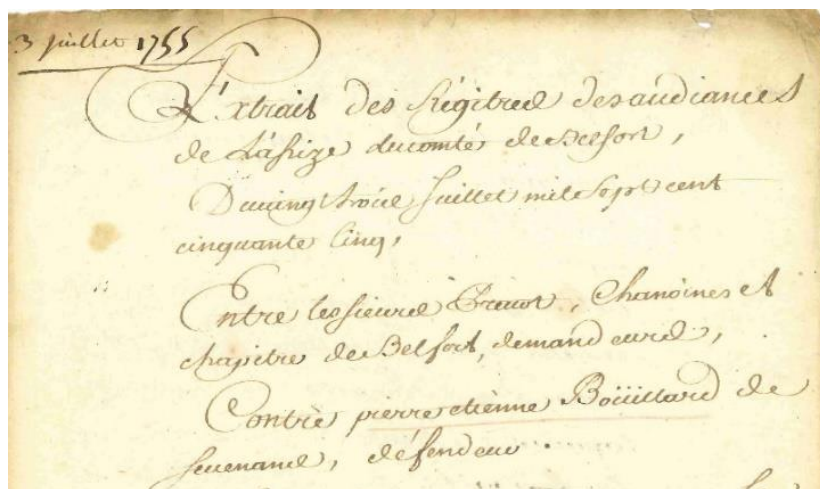 3 juillet 1755
Extrait des Régitres des audiances
de L'assize du comté de Belfort,
Du vingt trois Juillet mil Sept cent
cinquante Cinq,
Entre les sieurs Prevot, Chanoines et
chapitre de Belfort, demandeurs,
Contre pierre etienne Boüillard de
Sevenans, défendeur